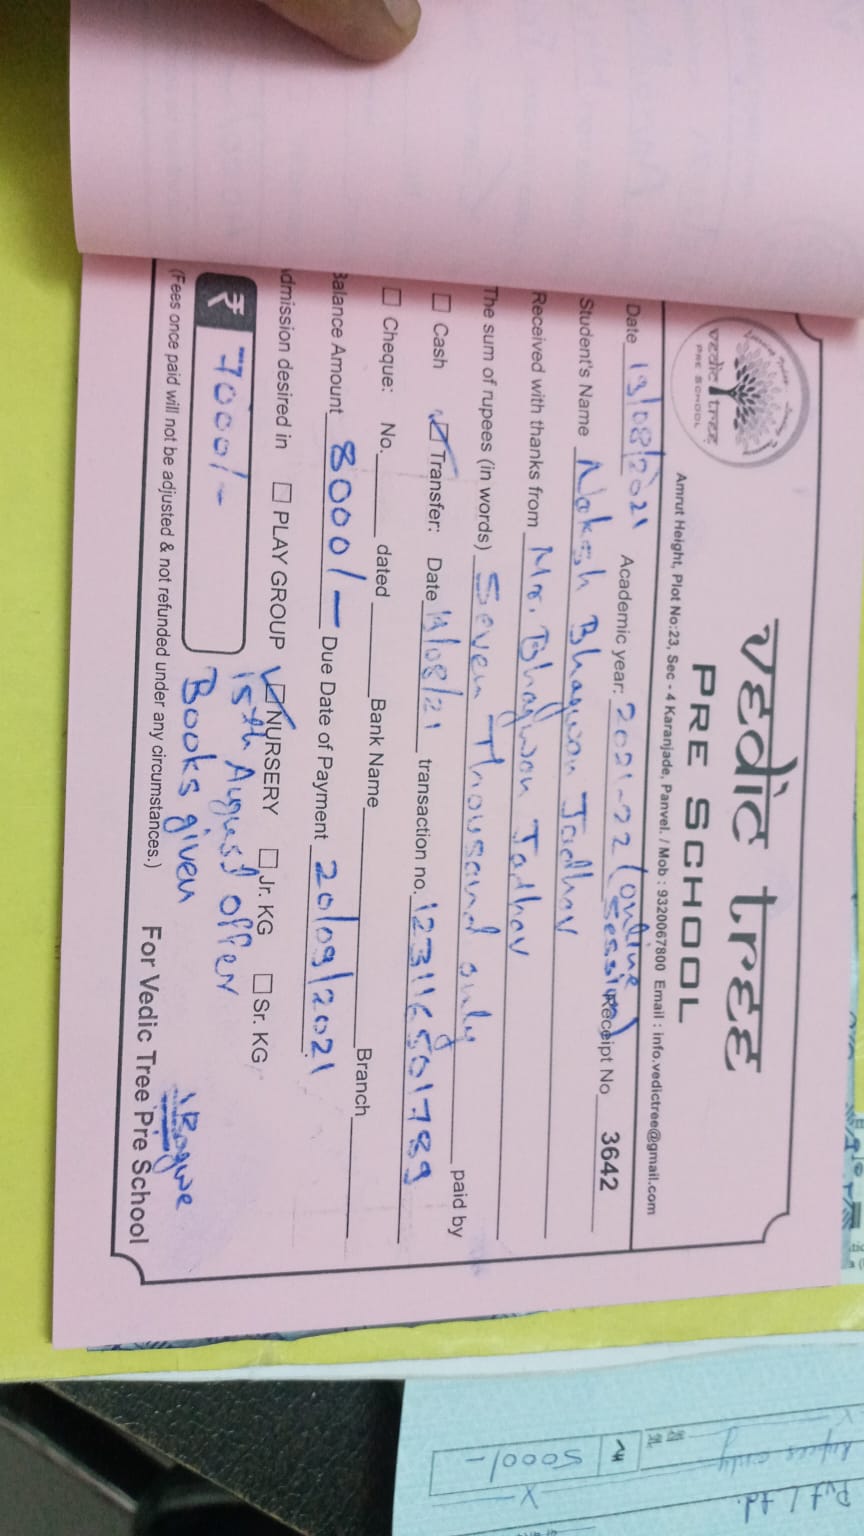 vedic tree
PRE SCHOOL
vedic tree
PRE SCHOOL
Amrut Height, Plot No:23, Sec - 4 Karanjade, Panvel. / Mob : 9320067800 Email : info.vedictree@gmail.com
Date 13/08/2021 Academic year: 2021-22 (online session) Receipt No 3642
Student's Name Naksh Bhagwan Jadhav
Received with thanks from Mr. Bhagwan Jadhav
The sum of rupees (in words) Seven Thousand only paid by
Cash Transfer: Date transaction no. 123116501789
Cheque: No. dated Bank Name Branch
Balance Amount 8000/- Due Date of Payment 20/09/2021
dmission desired in PLAY GROUP NURSERY Jr. KG Sr. KG
₹ 7000/- 15th August offer
Books given
(Fees once paid will not be adjusted & not refunded under any circumstances.) For Vedic Tree Pre School
5000/-